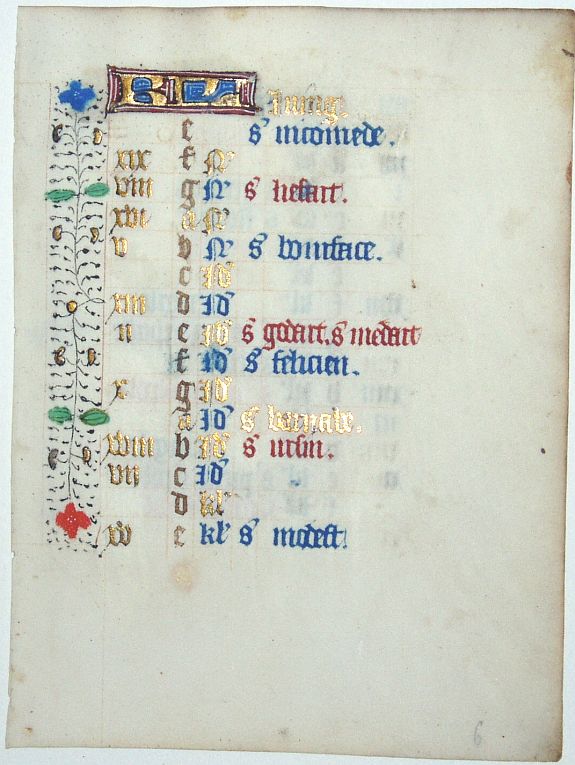 Iuing.
e s' nicomede.
xix f N'
viii g N' s' liefart.
xvi a N'
v b N' s' boniface.
c Id'
xiii d Id'
ii e Id' s' godart. s' medart
f Id' s' felicien.
x g Id'
a Id' s' barnabe.
xviii b Id' s' ursin.
vii c Id'
d kl'
xv e kl' s' modest.
6